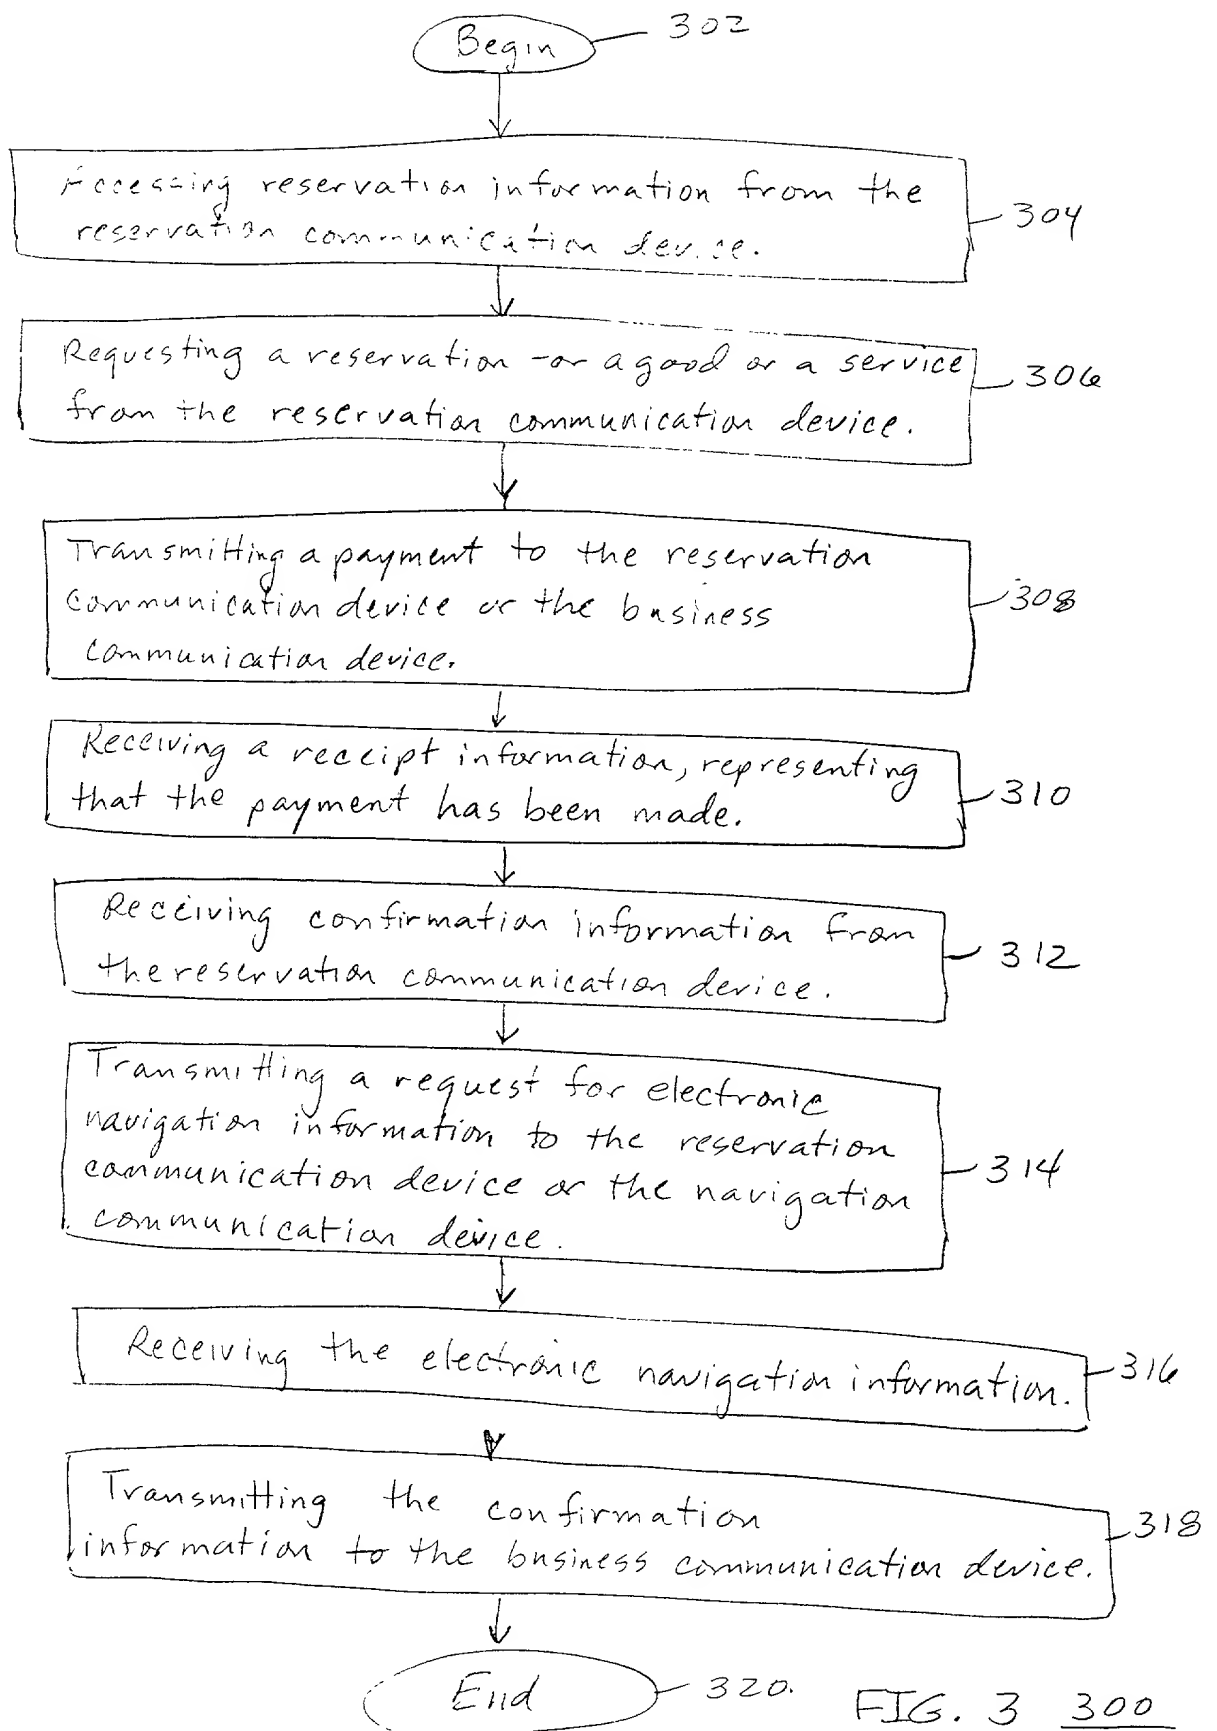 Begin
302
Accessing reservation information from the
reservation communication device.
304
Requesting a reservation for a good or a service
from the reservation communication device.
306
Transmitting a payment to the reservation
communication device or the business
communication device.
308
Receiving a receipt information, representing
that the payment has been made.
310
Receiving confirmation information from
the reservation communication device.
312
Transmitting a request for electronic
navigation information to the reservation
communication device or the navigation
communication device.
314
Receiving the electronic navigation information.
316
Transmitting the confirmation
information to the business communication device.
318
End
320.
FIG. 3 300